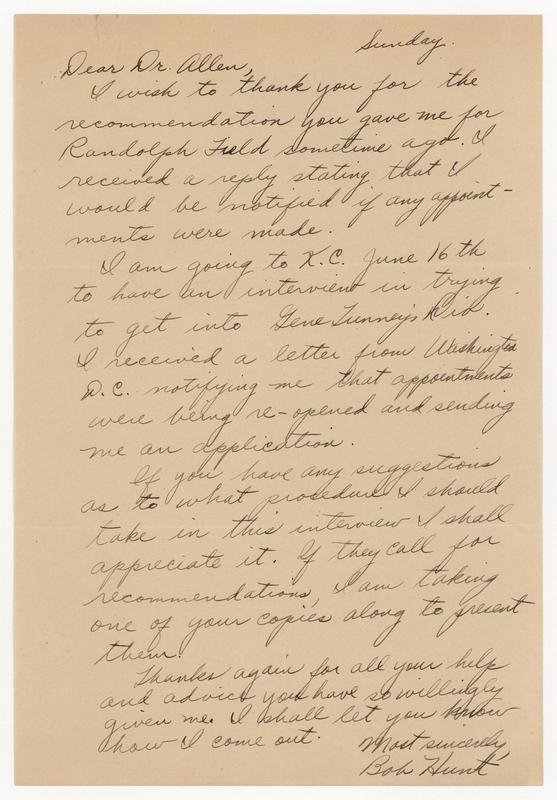 Sunday.
Dear Dr. Allen,
I wish to thank you for the
recommendation you gave me for
Randolph Field sometime ago. I
received a reply stating that I
would be notified if any appoint-
ments were made.
I am going to K.C. June 16th
to have an interview in trying
to get into Gene Tunney's Div.
I received a letter from Washington
D.C. notifying me that appointments
were being re-opened and sending
me an application.
If you have any suggestions
as to what procedure I should
take in this interview I shall
appreciate it. If they call for
recommendations, I am taking
one of your copies along to present
them.
Thanks again for all your help
and advice you have so willingly
given me. I shall let you know
how I come out.
Most sincerely,
Bob Hunt